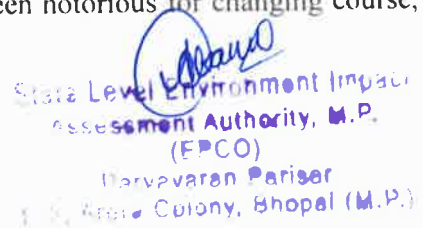 een notorious for changing course,
State Level Environment Impact
Assessment Authority, M.P.
(EPCO)
Paryavaran Parisar
Colony, Bhopal (M.P.)